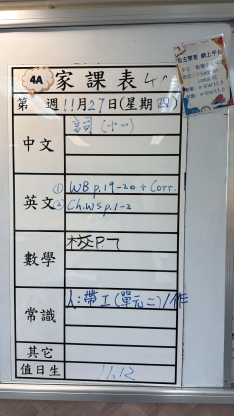 4A 家課表
第 週 11月27日(星期四)
中文 言司(十一)
英文 ① WB p.19-20 + Corr.
② Ch.WS p.1-2
數學 校P.7
常識 人:帶工(單元二)/作
其它
值日生 11,12
自主學習 網上平台